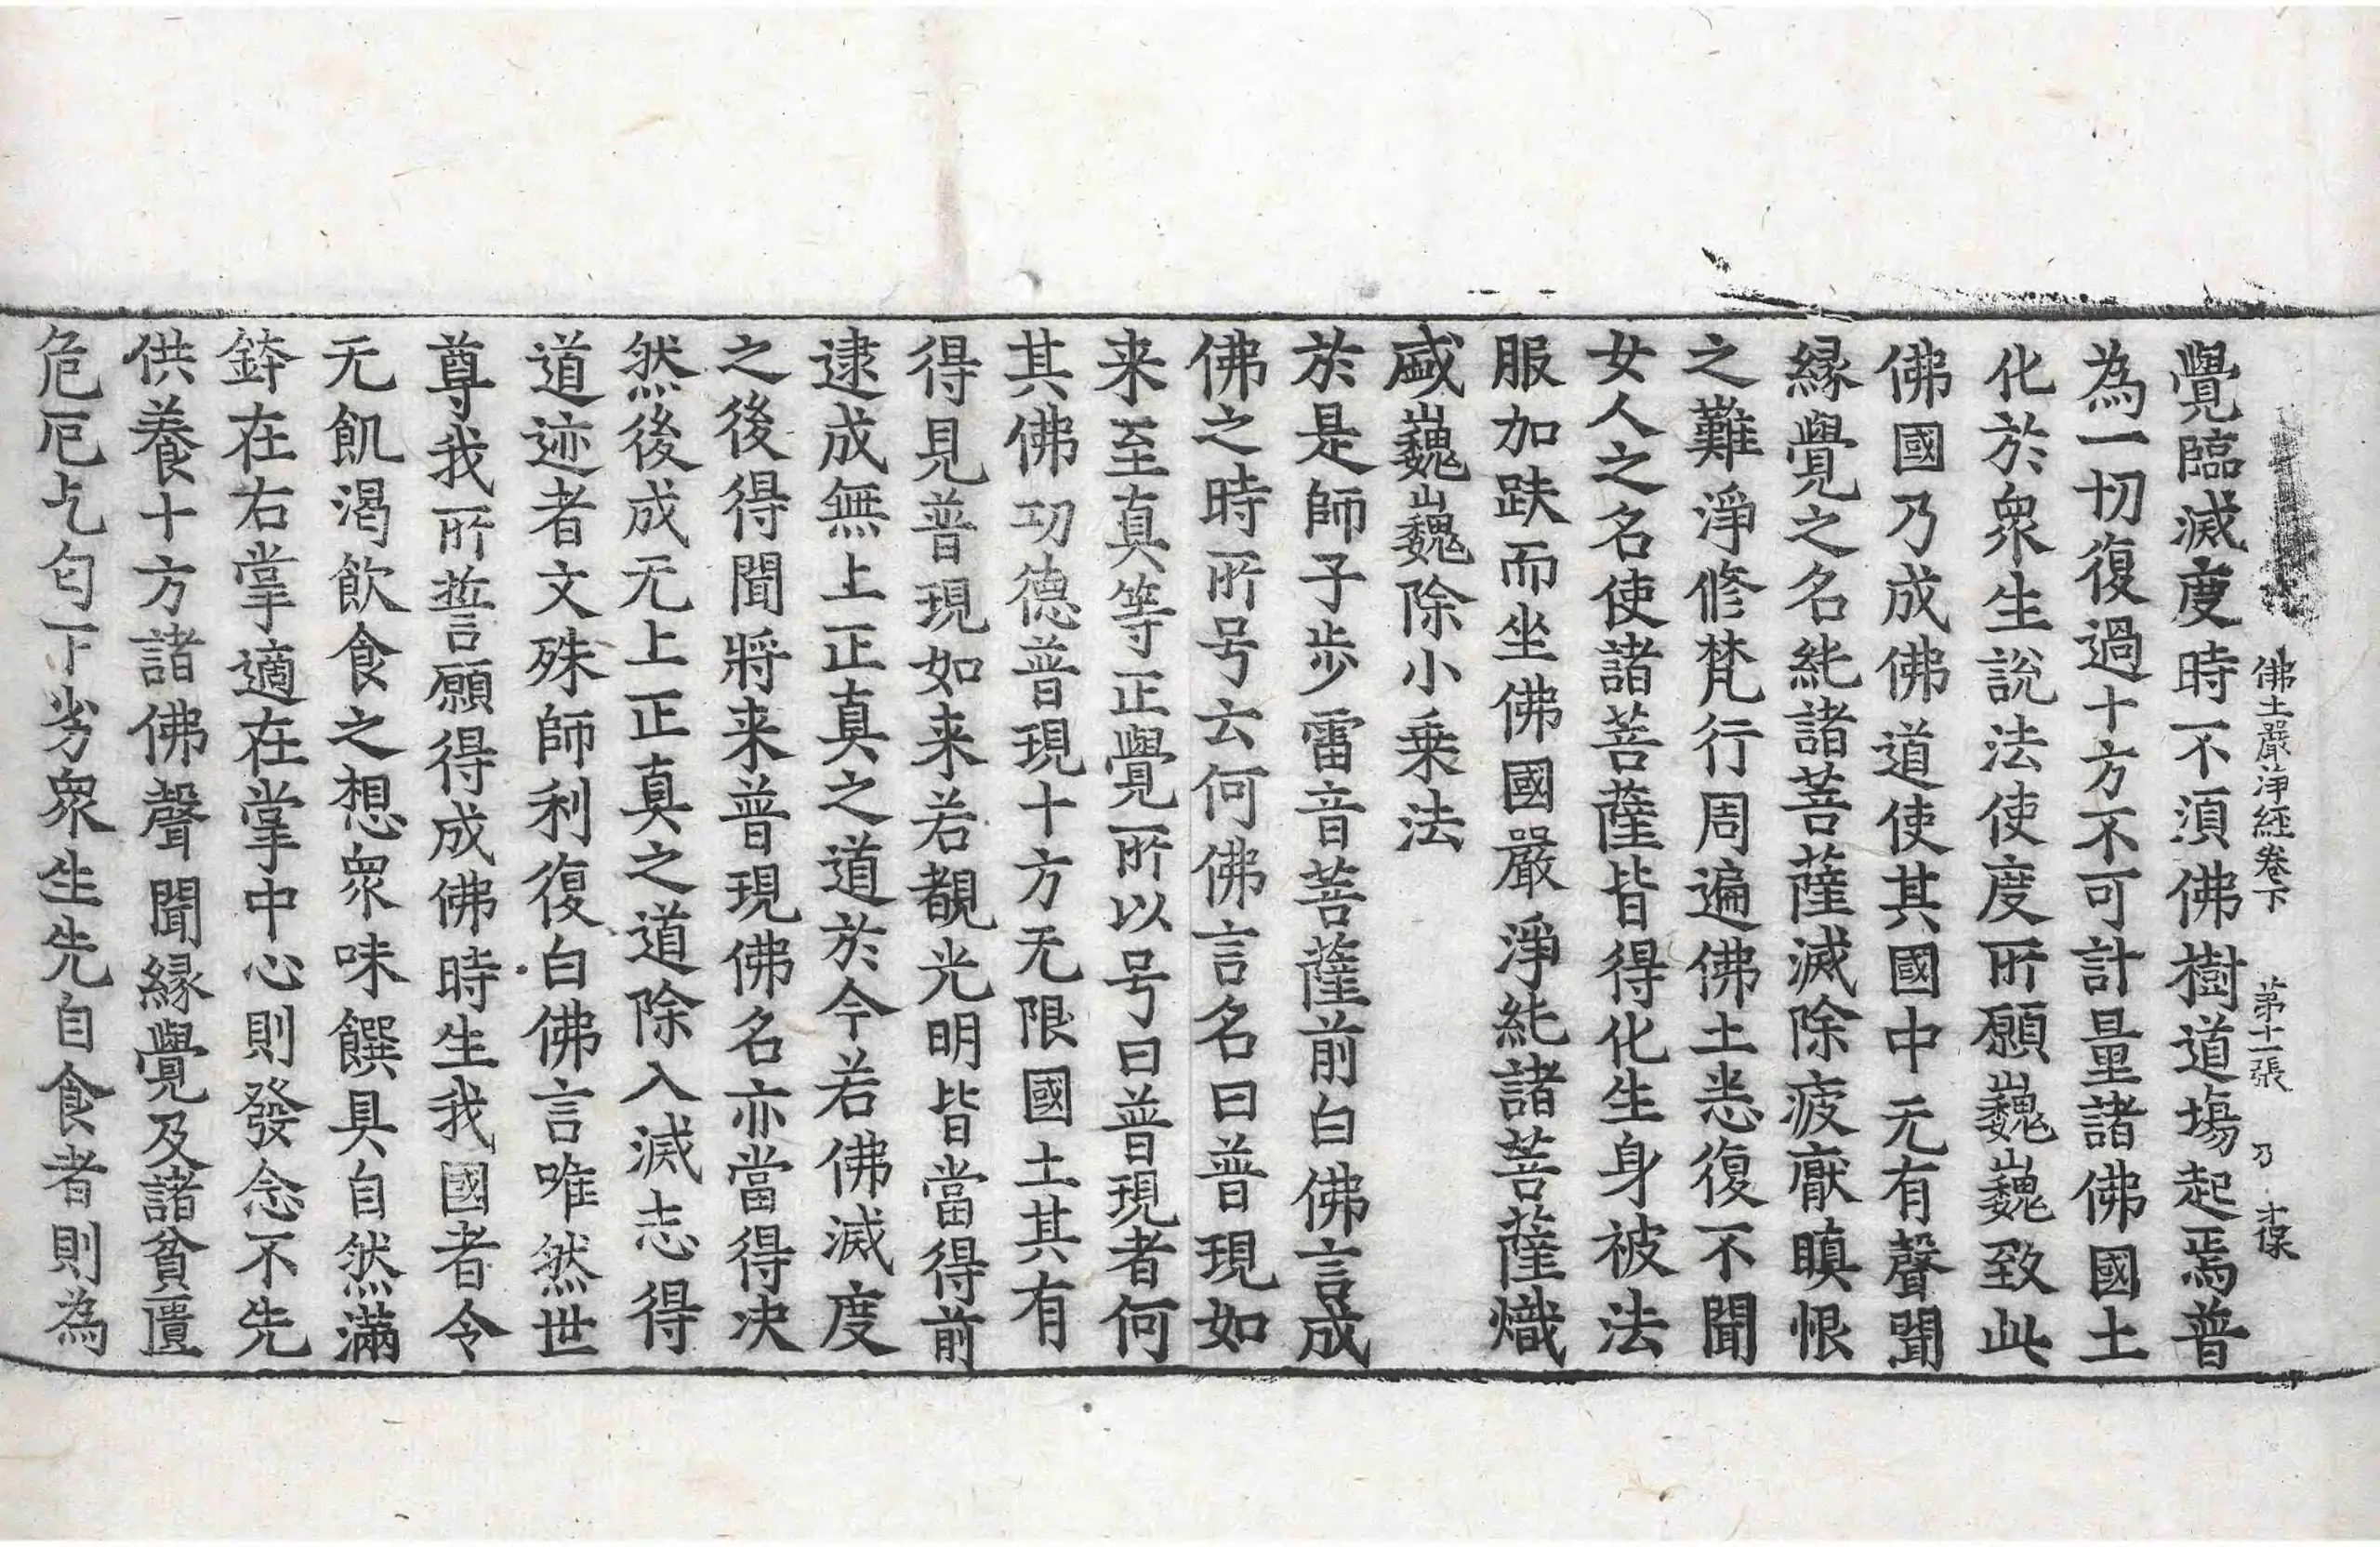 佛土嚴淨經卷下 苐十一張 乃
覺臨滅度時不湏佛樹道塲起焉普
為一切復過十方不可計量諸佛國土
化於衆生說法使度所願巍巍致此
佛國乃成佛道使其國中无有聲聞
縁覺之名純諸菩薩滅除疲猒瞋恨
之難淨修梵行周遍佛土悉復不聞
女人之名使諸菩薩皆得化生身被法
服加趺而坐佛國嚴淨純諸菩薩熾
盛巍巍除小乗法
於是師子步雷音菩薩前白佛言成
佛之時所号云何佛言名曰普現如
来至真等正覺所以号曰普現者何
其佛功德普現十方无限國土其有
得見普現如来若覩光明皆當得前
逮成無上正真之道於今若佛滅度
之後得聞將来普現佛名亦當得决
然後成无上正真之道除入滅志得
道迹者文殊師利復白佛言唯然世
尊我所誓願得成佛時生我國者令
无飢渴飲食之想衆味饌具自然滿
鉢在右掌適在掌中心則發念不先
供養十方諸佛聲聞縁覺及諸貧匱
危厄乞匃下劣衆生先自食者則為